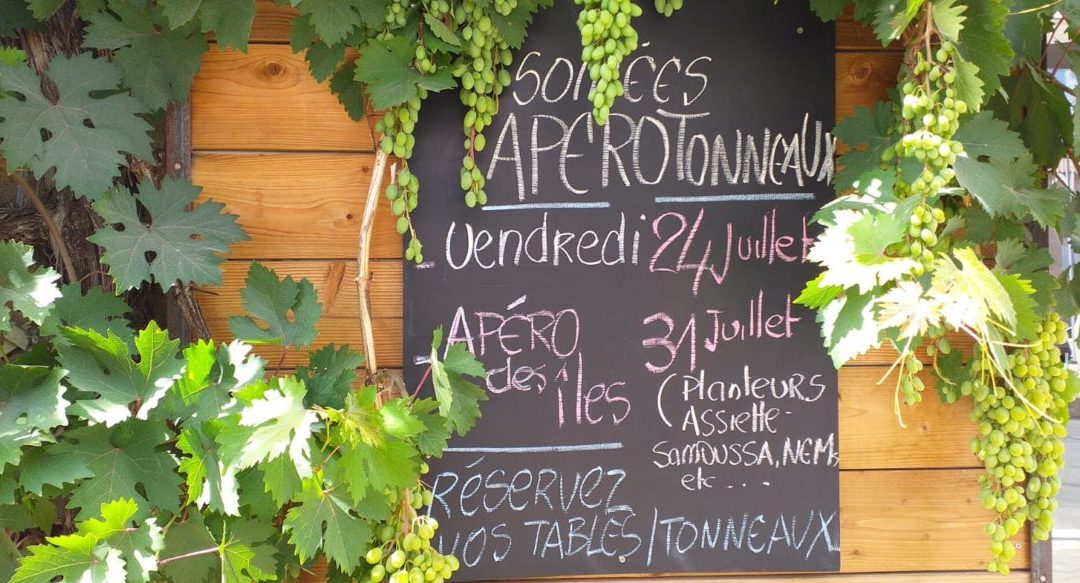 SOIRÉES
APEROTONNEAUX
- Vendredi 24 Juillet
- APÉRO des îles
31 Juillet
( Planteurs
Assiette -
Samoussa, NEMs
etc ....
RÉSERVEZ
VOS TABLES/TONNEAUX